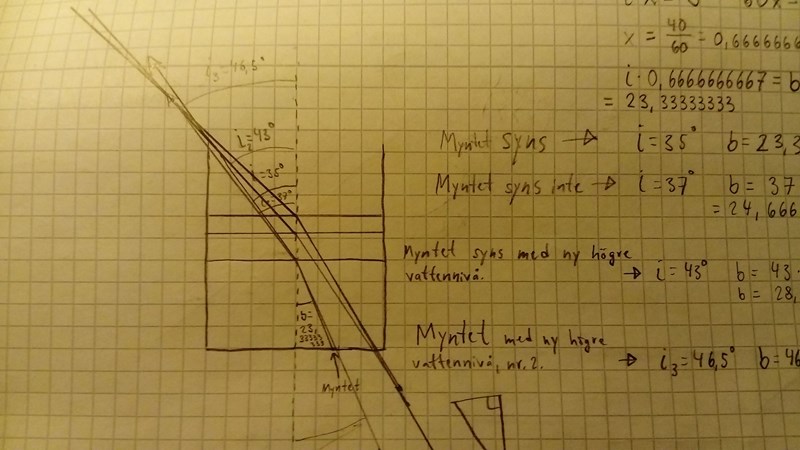 x = 40/60 = 0,6666666
i · 0,6666666667 = b
= 23,33333333
i₃=46,5°
i₂=43°
i=35°
Myntet syns → i=35° b=23,3
Myntet syns inte → i=37° b = 37
= 24,666
Myntet syns med ny högre
vattennivå. → i=43° b = 43
b = 28,
Myntet med ny högre
vattennivå, nr. 2. → i₃=46,5° b=46
b=
23,
33333
333
Myntet